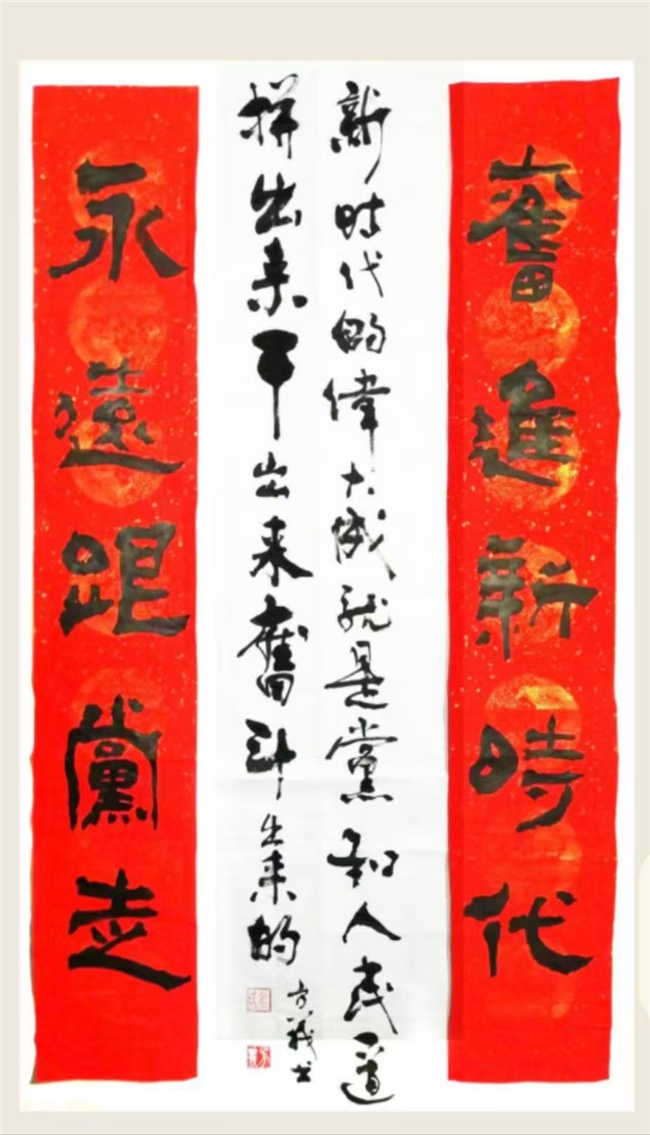 奮進新時代
新时代的偉大成就是黨和人民一道
拼出来干出来奮斗出来的
永遠跟黨走